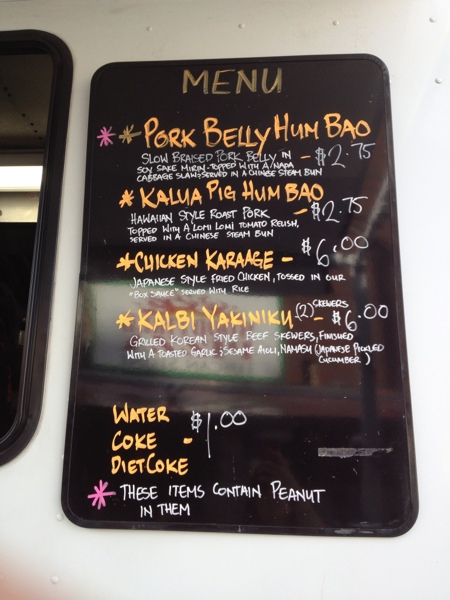 MENU
* * PORK BELLY HUM BAO
SLOW BRAISED PORK BELLY IN - $2.75
SOY SAKE MIRIN-TOPPED WITH A NAPA
CABBAGE SLAW; SERVED IN A CHINESE STEAM BUN
* KALUA PIG HUM BAO
HAWAIIAN STYLE ROAST PORK - $2.75
TOPPED WITH A LOMI LOMI TOMATO RELISH,
SERVED IN A CHINESE STEAM BUN
* CHICKEN KARAAGE - $6.00
JAPANESE STYLE FRIED CHICKEN, TOSSED IN OUR
"BOX SAUCE" SERVED WITH RICE
* KALBI YAKINIKU (2) SKEWERS - $6.00
GRILLED KOREAN STYLE BEEF SKEWERS, FINISHED
WITH A TOASTED GARLIC & SESAME AIOLI, NAMASU (JAPANESE PICKLED
CUCUMBER)
WATER
COKE - $1.00
DIET COKE
* THESE ITEMS CONTAIN PEANUT
IN THEM